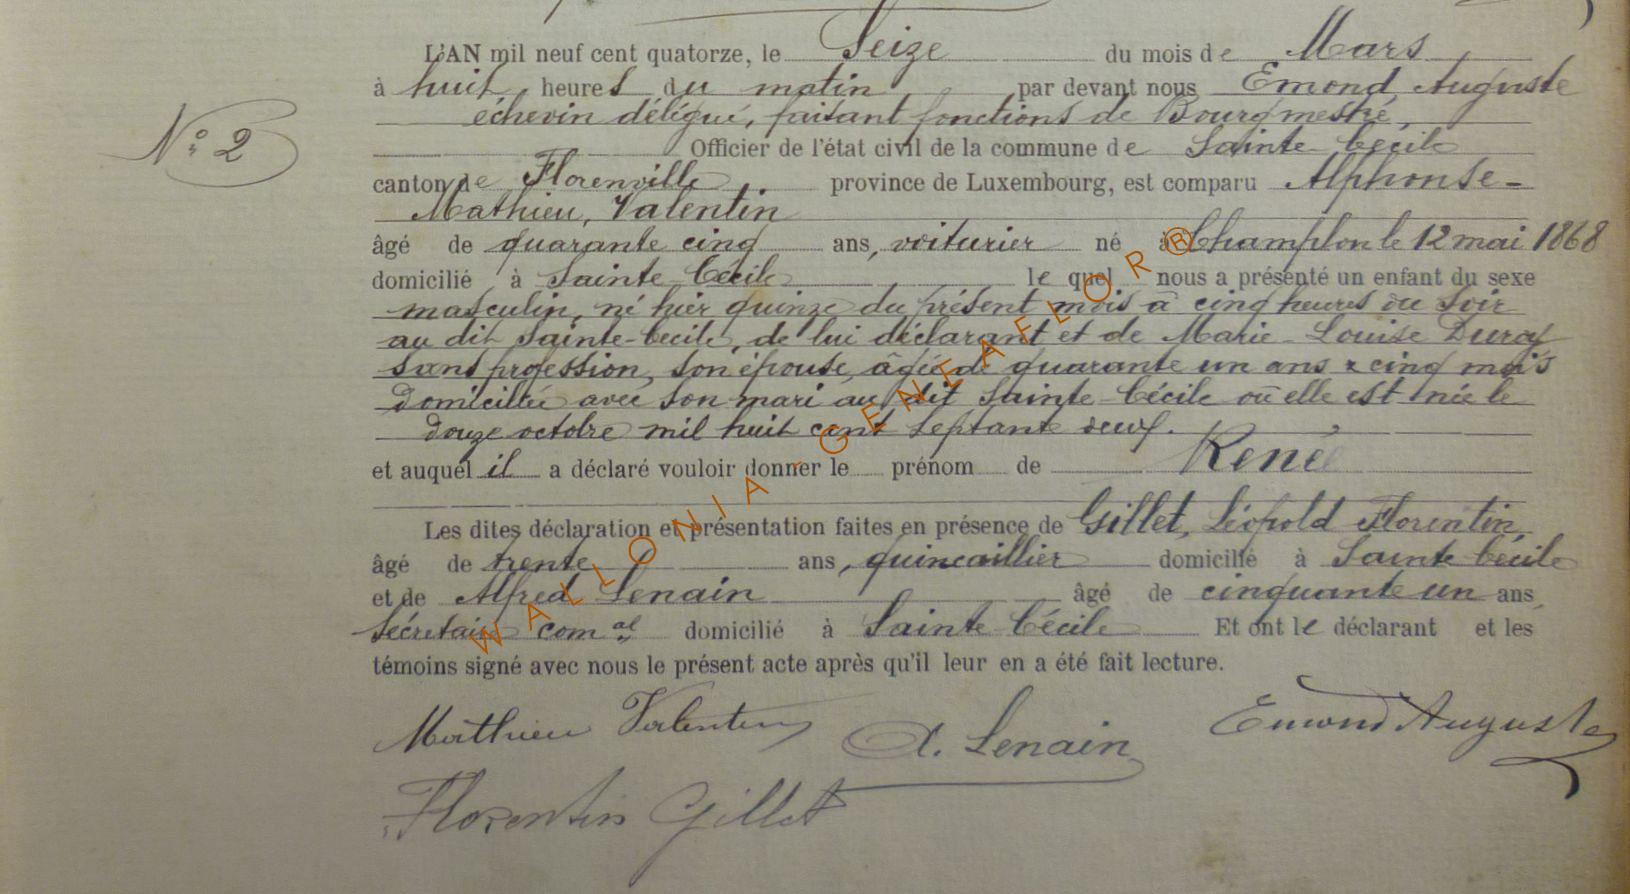 L'AN mil neuf cent quatorze, le Seize du mois de Mars
à huit heures du matin par devant nous Emond, Auguste
échevin délégué, faisant fonctions de Bourgmestre,
N° 2
Officier de l'état civil de la commune de Sainte-Cécile
canton de Florenville province de Luxembourg, est comparu Alphonse-
Mathieu, Valentin
âgé de quarante cinq ans, voiturier né à Champlon le 12 mai 1868
domicilié à Sainte Cécile lequel nous a présenté un enfant du sexe
masculin, né hier quinze du présent mois à cinq heures du soir
au dit Sainte-Cécile, de lui déclarant et de Marie-Louise Duroy
sans profession, son épouse, âgée de quarante un ans & cinq mois
domiciliée avec son mari au dit Sainte-Cécile où elle est née le
douze octobre mil huit cent septante deux.
et auquel il a déclaré vouloir donner le prénom de René
Les dites déclaration et présentation faites en présence de Gillet, Léopold Florentin,
âgé de trente ans, quincaillier domicilié à Sainte Cécile
et de Alfred Lenain âgé de cinquante un ans,
secrétaire com.al domicilié à Sainte Cécile Et ont le déclarant et les
témoins signé avec nous le présent acte après qu'il leur en a été fait lecture.
Mathieu Valentin A. Lenain Emond Auguste
Florentin Gillet
WALLONIA-GENEAFLOR®